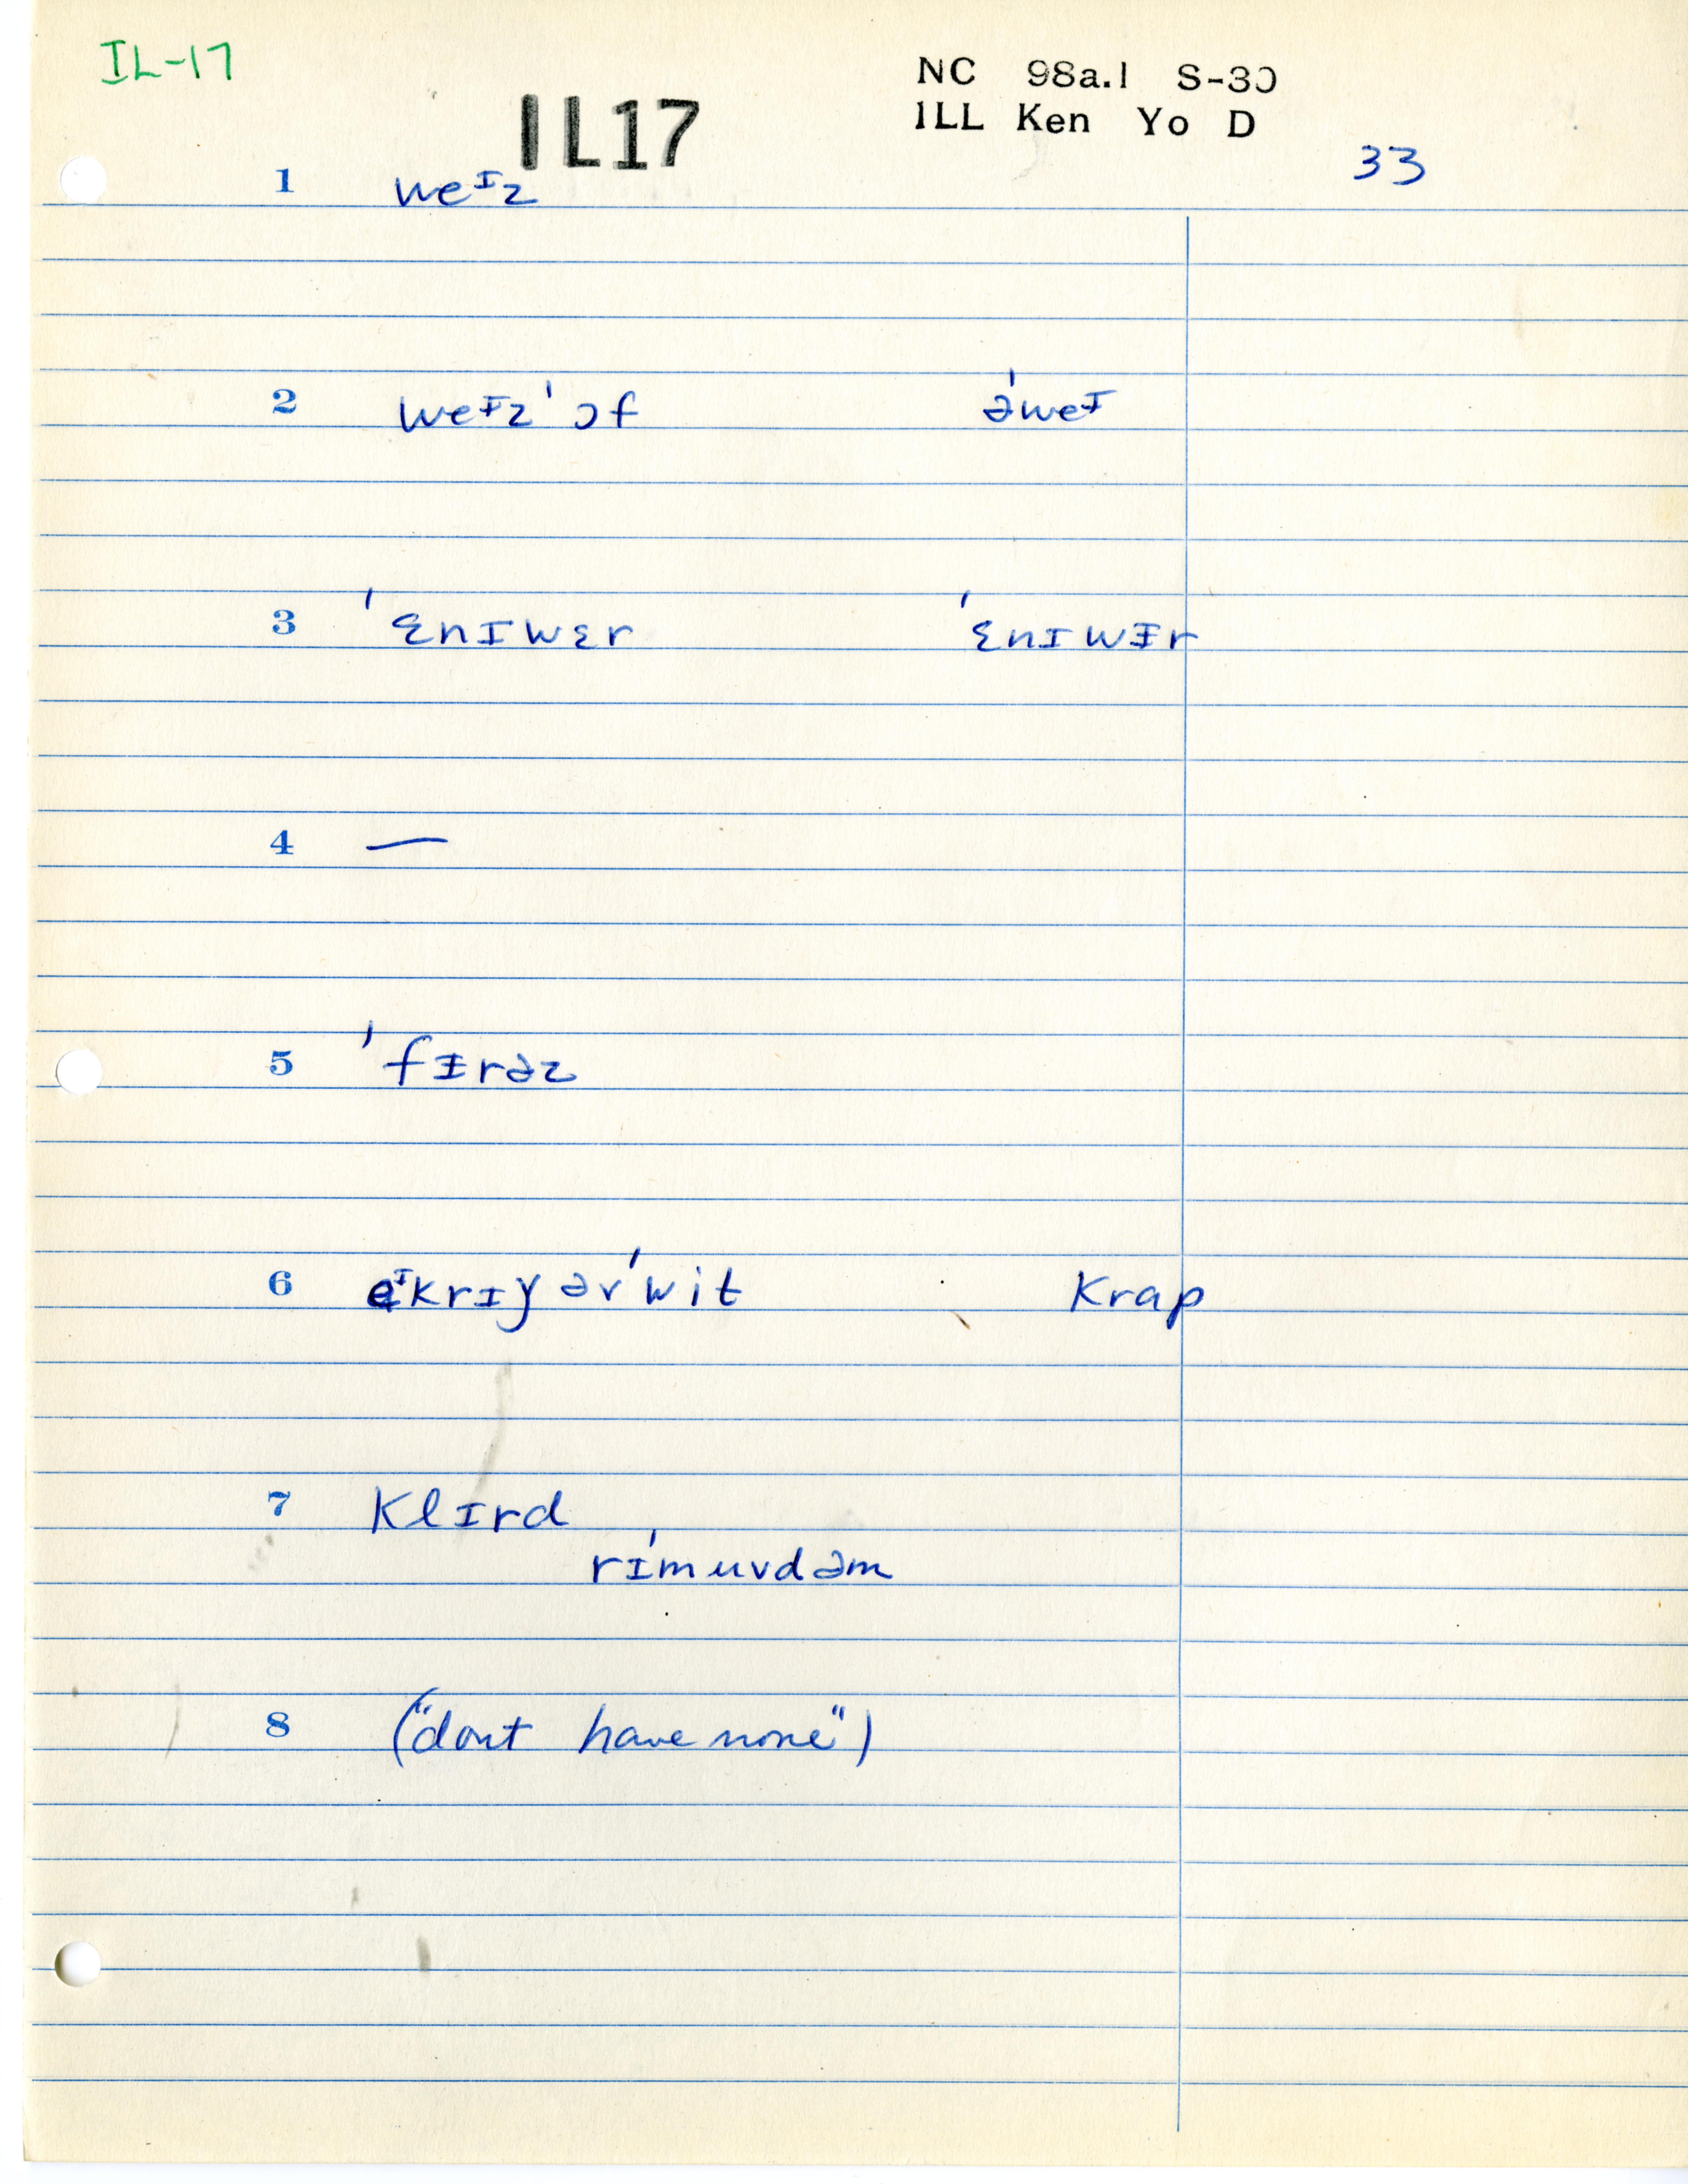 IL-17
NC 98a.1 S-30
IL17
ILL Ken Yo D
33
1 weᴵz
2 weᵻz ˈɔf ˈəweᵻ
3 ˈɛnɪwɛr ˈɛnɪwᵻr
4 —
5 ˈfᵻrəz
6 eᴵkrɪyəvˈwit Krap
7 Klɪrd
rɪˈmuvdəm
8 ("dont have none")